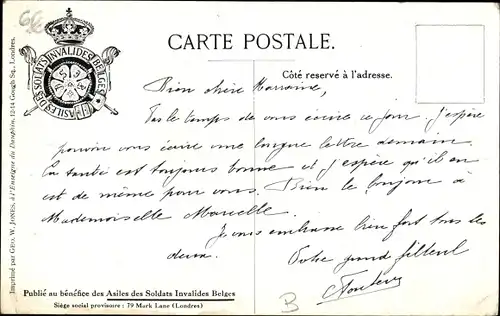 CARTE POSTALE.
Côté reservé à l'adresse.
ASILES DES SOLDATS INVALIDES BELGES
Imprimé par GEO. W. JONES, à l'Enseigne du Dauphin, 12/14 Gough Sq., Londres.
Bien chère Marraine,
Pas le temps de vous écrire ce jour. J'espère
pouvoir vous écrire une longue lettre demain
La santé est toujours bonne et j'espère qu'il en
est de même pour vous. Bien le bonjour à
Mademoiselle Marcelle.
Je vous embrasse bien fort tous les
deux.
Votre grand filleul
Publié au bénéfice des Asiles des Soldats Invalides Belges
Siège social provisoire : 79 Mark Lane (Londres)
B